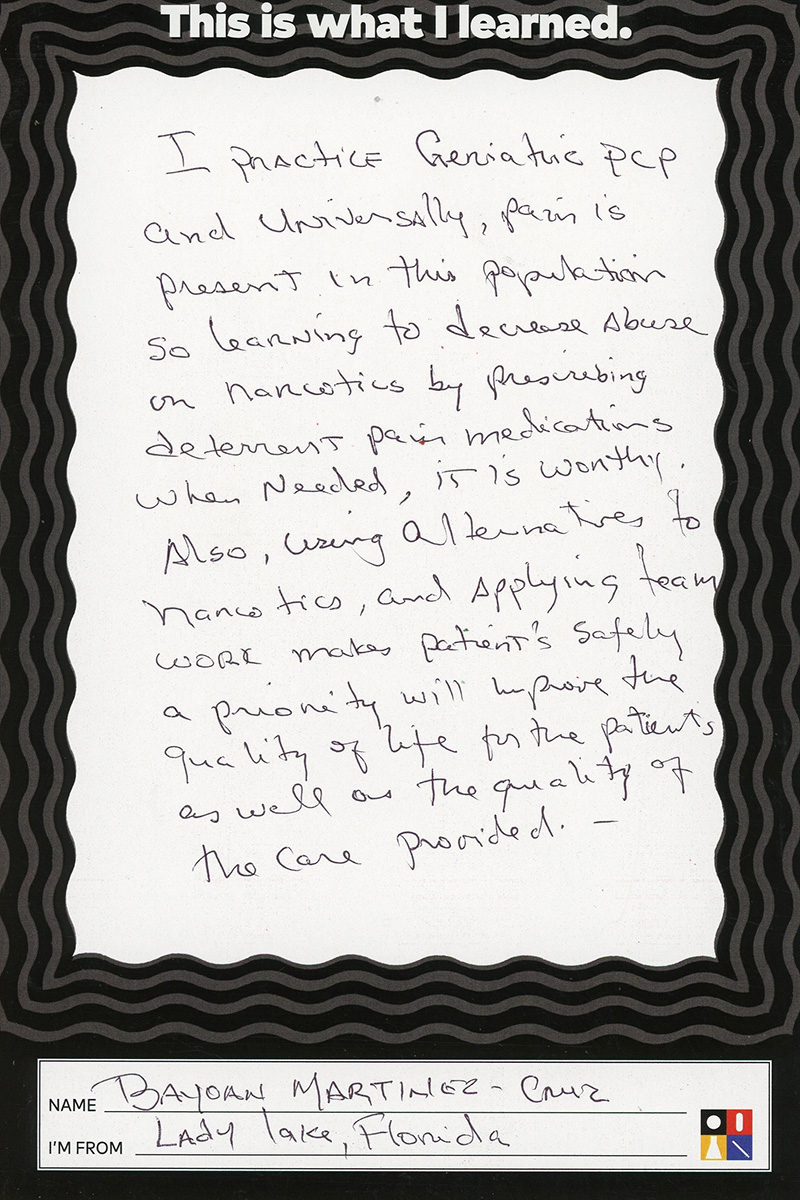 This is what I learned.
I practice Geriatric PCP
and Universally, pain is
present in this population
so learning to decrease Abuse
on narcotics by prescribing
deterrent pain medications
when Needed, it is worthy.
Also, using alternatives to
narcotics, and applying team
work makes patient's safely
a priority will improve the
quality of life for the patients
as well as the quality of
the care provided. –
NAME BAYOAN MARTINEZ - Cruz
I'M FROM Lady lake, Florida